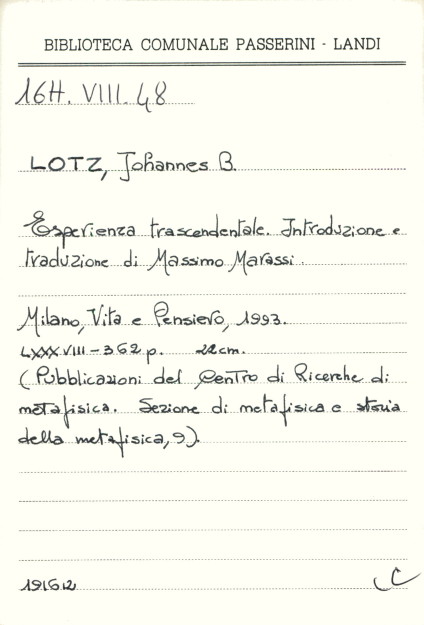 BIBLIOTECA COMUNALE PASSERINI - LANDI
16H. VIII. 48
LOTZ, Johannes B.
Esperienza trascendentale. Introduzione e
traduzione di Massimo Marassi.
Milano, Vita e Pensiero, 1993.
LXXXVIII-362 p. 22cm.
(Pubblicazioni del Centro di Ricerche di
metafisica. Sezione di metafisica e storia
della metafisica, 9).
191612
C